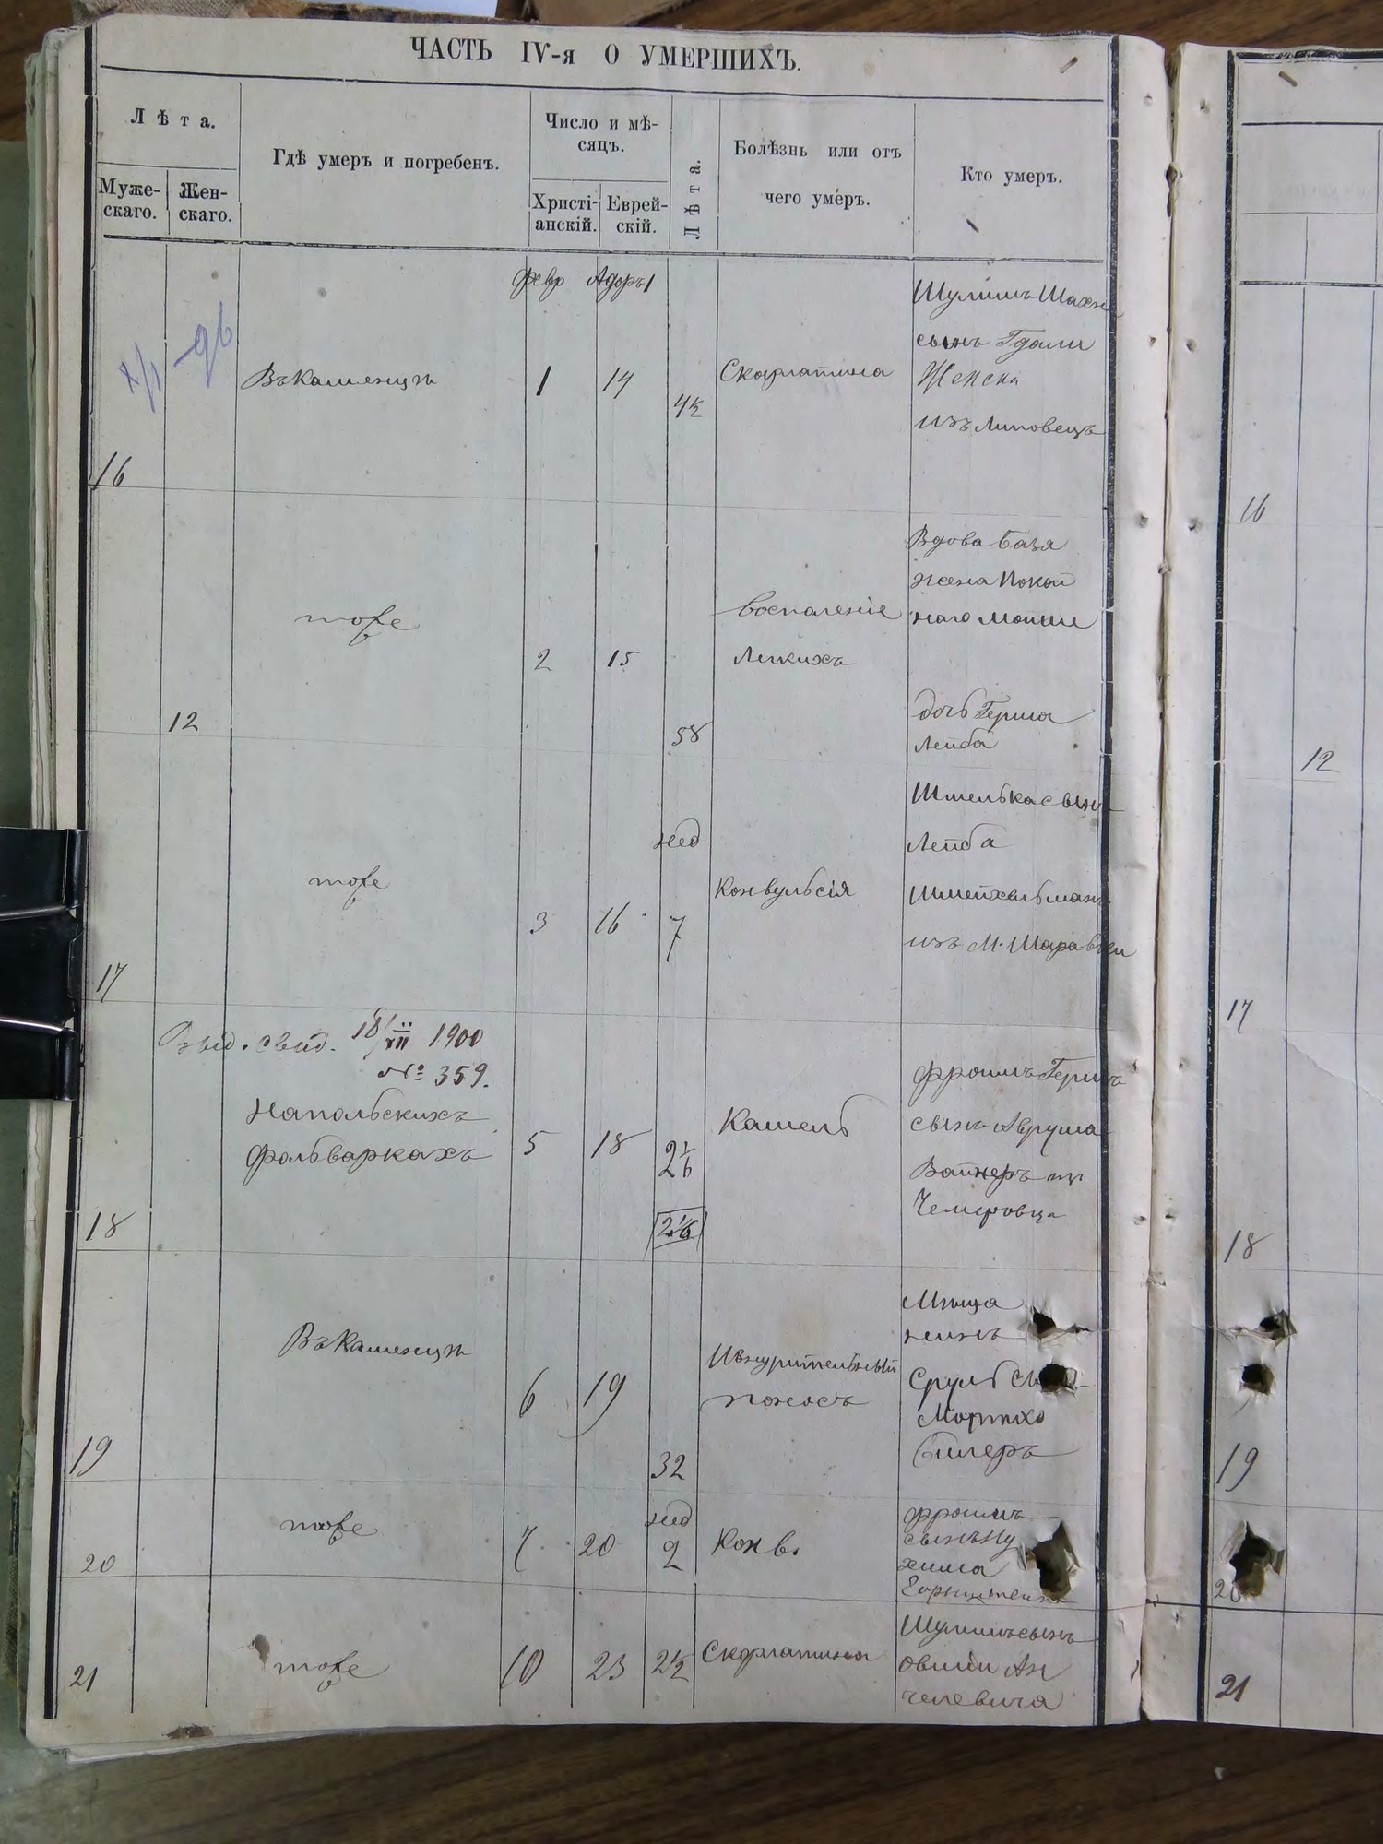 ЧАСТЬ IV-я О УМЕРШИХЪ.
Лѣта.
Муже-
скаго.
Жен-
скаго.
Гдѣ умеръ и погребенъ.
Число и мѣ-
сяцъ.
Христі-
анскій.
Еврей-
скій.
Лѣта.
Болѣзнь или отъ
чего умеръ.
Кто умеръ.
февр Адаръ 1
16
Въ Каменцѣ
1
14
4½
Скарлатина
Шулимъ Шахна
сынъ Гдали
изъ Липовецъ
16
12
тоже
2
15
58
воспаленіе
Легкихъ
Вдова Бася
жена Покой
наго Мотии
дочь Герша
Лейба
12
17
тоже
3
16
нед
7
Конвульсія
Шмелька сынъ
Лейба
Шмейхельманъ
изъ М. Шаравки
17
Выд. свид. 18/VII 1900
№ 359.
18
Напольскихъ
фольваркахъ
5
18
2½
Кашель
Фроимъ Гершъ
сынъ Аврума
Вайнеръ изъ
Чемеровца
18
19
Въ Каменцѣ
6
19
32
Изнурительный
поносъ
Мѣща
нинъ
Сруль
Мортхо
19
20
тоже
7
20
нед
2
Конв.
Фроимъ
сынъ Ну
хима
20
21
тоже
10
23
2½
Скарлатина
Шулимъ сынъ
Овшии Ан
челевича
21